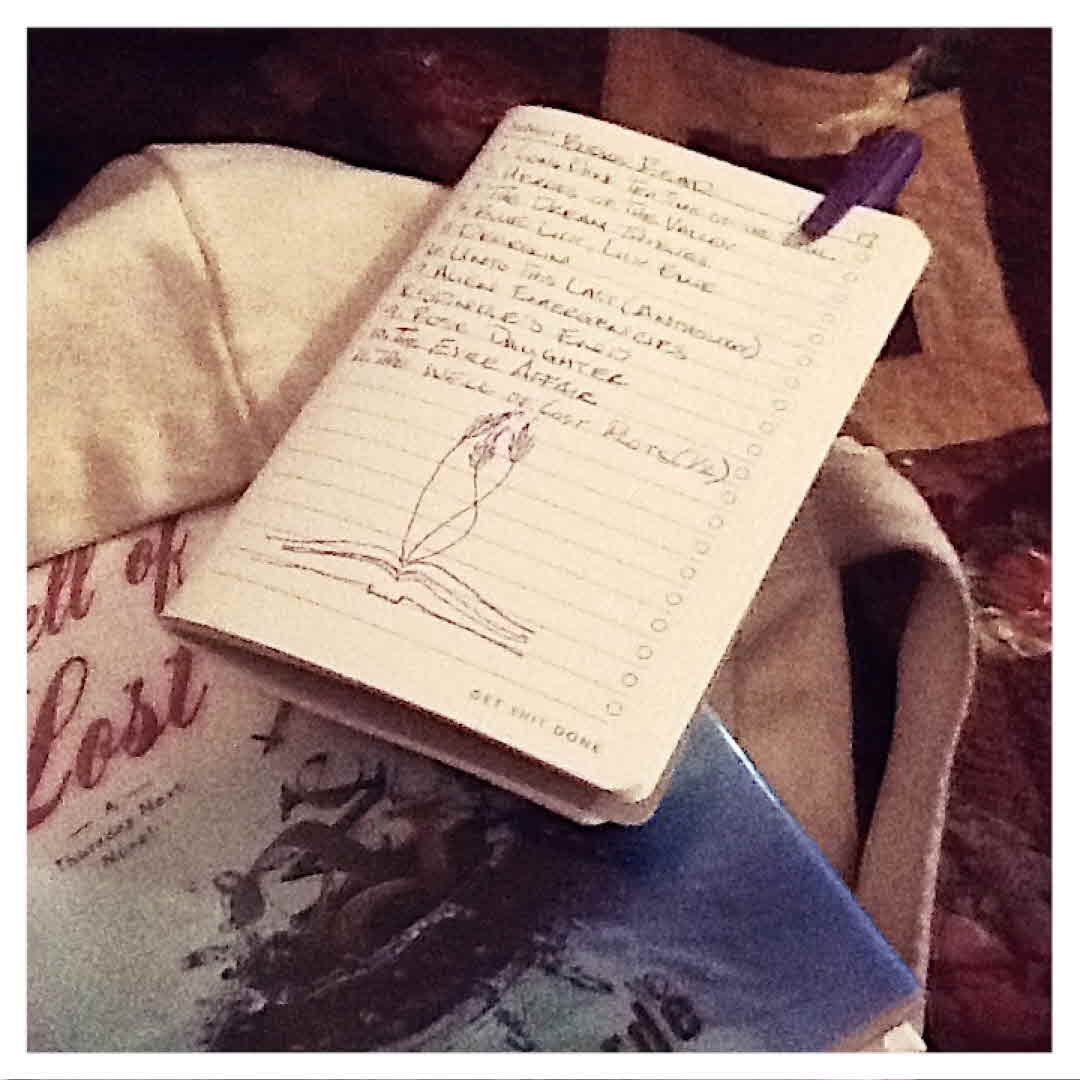 Books Read
1. Long Dark Tea Time of the Soul
2. Heroes of the Valley
3. The Dream Thieves
4. Blue Lily, Lily Blue
5. Peregrin
6. Unto The Last (Anthology)
7. Alien Emergencies
8. Spindle's End
9. Rose Daughter
10. The Eyre Affair
11. The Well of Lost Plots (1/2)
GET SHIT DONE
ell of
Lost
A
Thursday Next
Novel